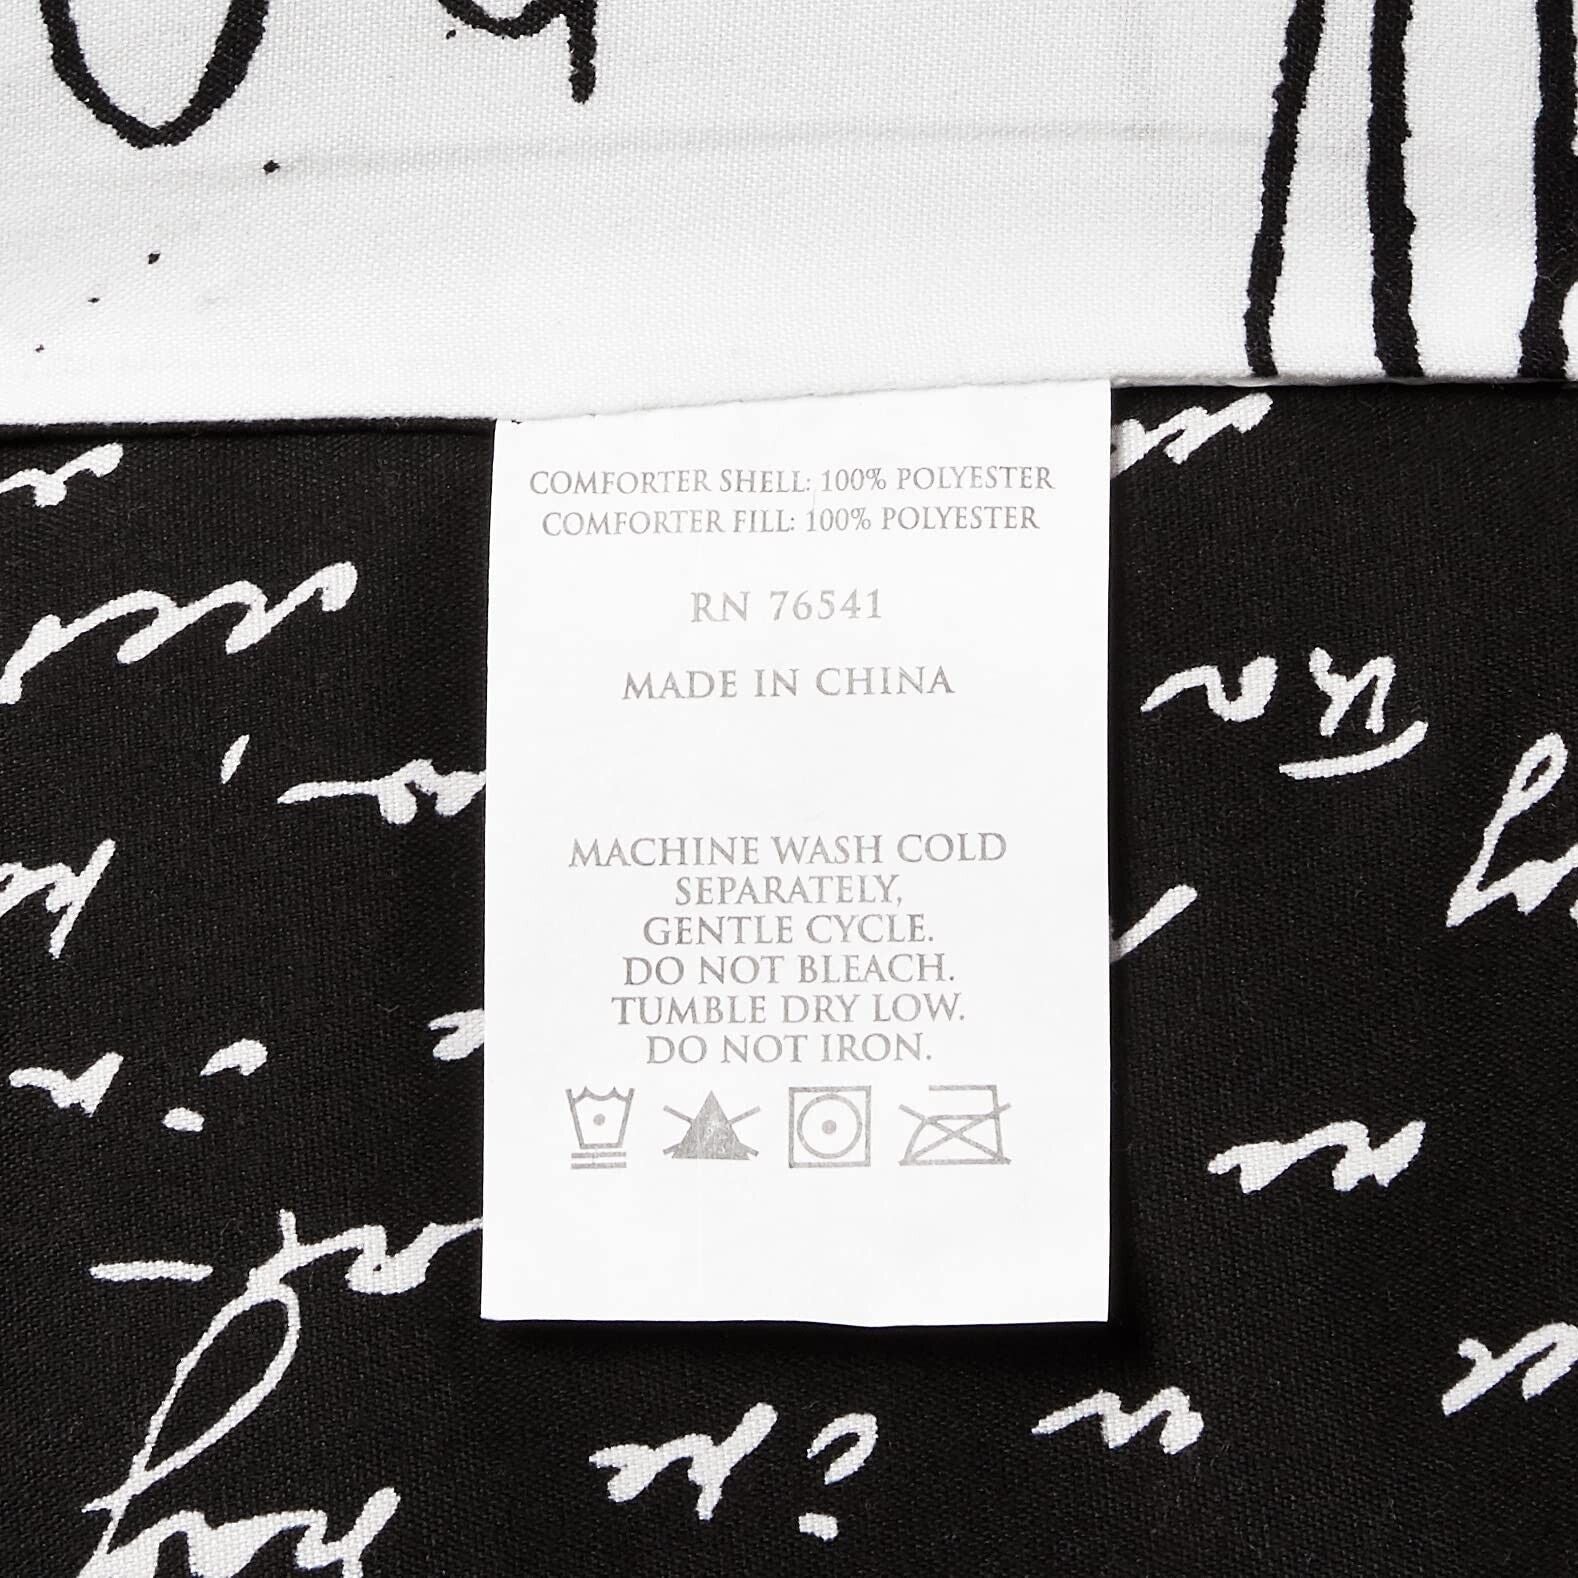 COMFORTER SHELL: 100% POLYESTER
COMFORTER FILL: 100% POLYESTER
RN 76541
MADE IN CHINA
MACHINE WASH COLD
SEPARATELY,
GENTLE CYCLE.
DO NOT BLEACH.
TUMBLE DRY LOW.
DO NOT IRON.